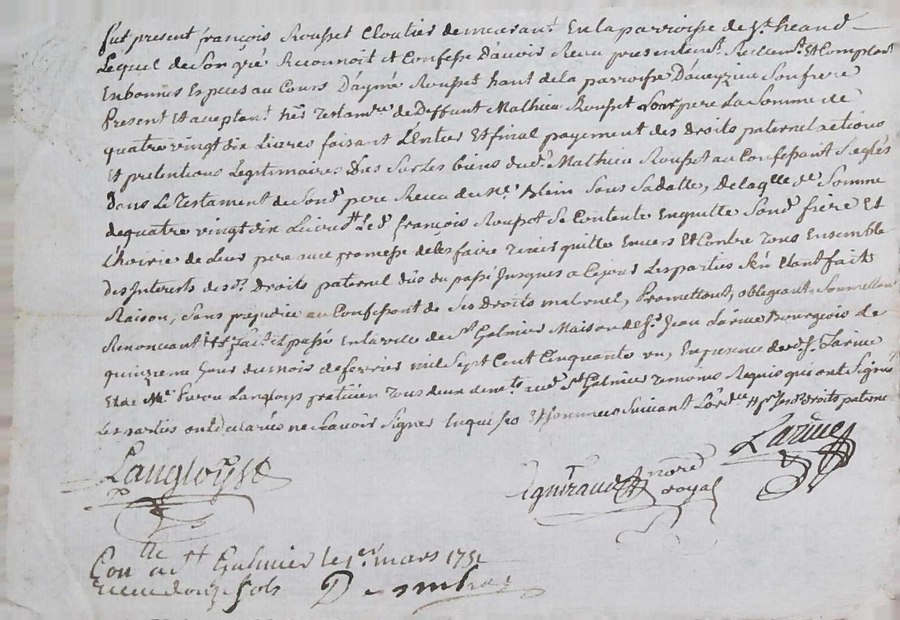 fut present françois Rousset Cloutier demeurant En la parroisse de St heand
Lequel de Son gré Reconnoit et Confesse D'avoir Recu presentemt Reellemt Et Comptant
En bonnes Especes au Cours D'aymé Rousset hant de la parroisse D'aveyzieu Son frere
Present Et aceptant her Testamre de Deffunt Mathieu Rousset Leur pere La Somme de
quatre vingt dix Livres faisant L'entier Et final payement des droits paternel actions
Et pretentions Legitimaires Dus Sur Les biens dudt Mathieu Rousset au Confessant Reglés
Dans Le Testament de Sond pere Recu de Me Blein Sous Sa datte, De laqlle de Somme
de quatre vingt dix Livres Led françois Rousset Se Contente En quitte Sond frere Et
L'hoirie de Leur pere avec promesse de les faire tenir quitte Envers Et Contre Tous Ensemble
Des Interets de sds droits paternel dûs du passé Jusques a Ce jour Les parties S'en Etant fait
Raison, Sans prejudice au Confessant de Ses droits maternel, Promettant, obligeant, Soumettant
Renoncant fait et passé En la ville de St Galmier Maison de Sr Jean Larive Bourgeois Le
quinzieme Jour du mois de fevrier mil Sept Cent Cinquante un, En presence dud Sr Larive
Et de Me Langloys praticien Tous deux demts aud St Galmier temoins Requis qui ont Signé
Les parties ont declarées ne Scavoir Signer Enquises Et Sommees Suivant L'orde droits paternel
Langloys
notre
royal
Larive
Conlle a St Galmier le 1er mars 1751
Recu douze sols